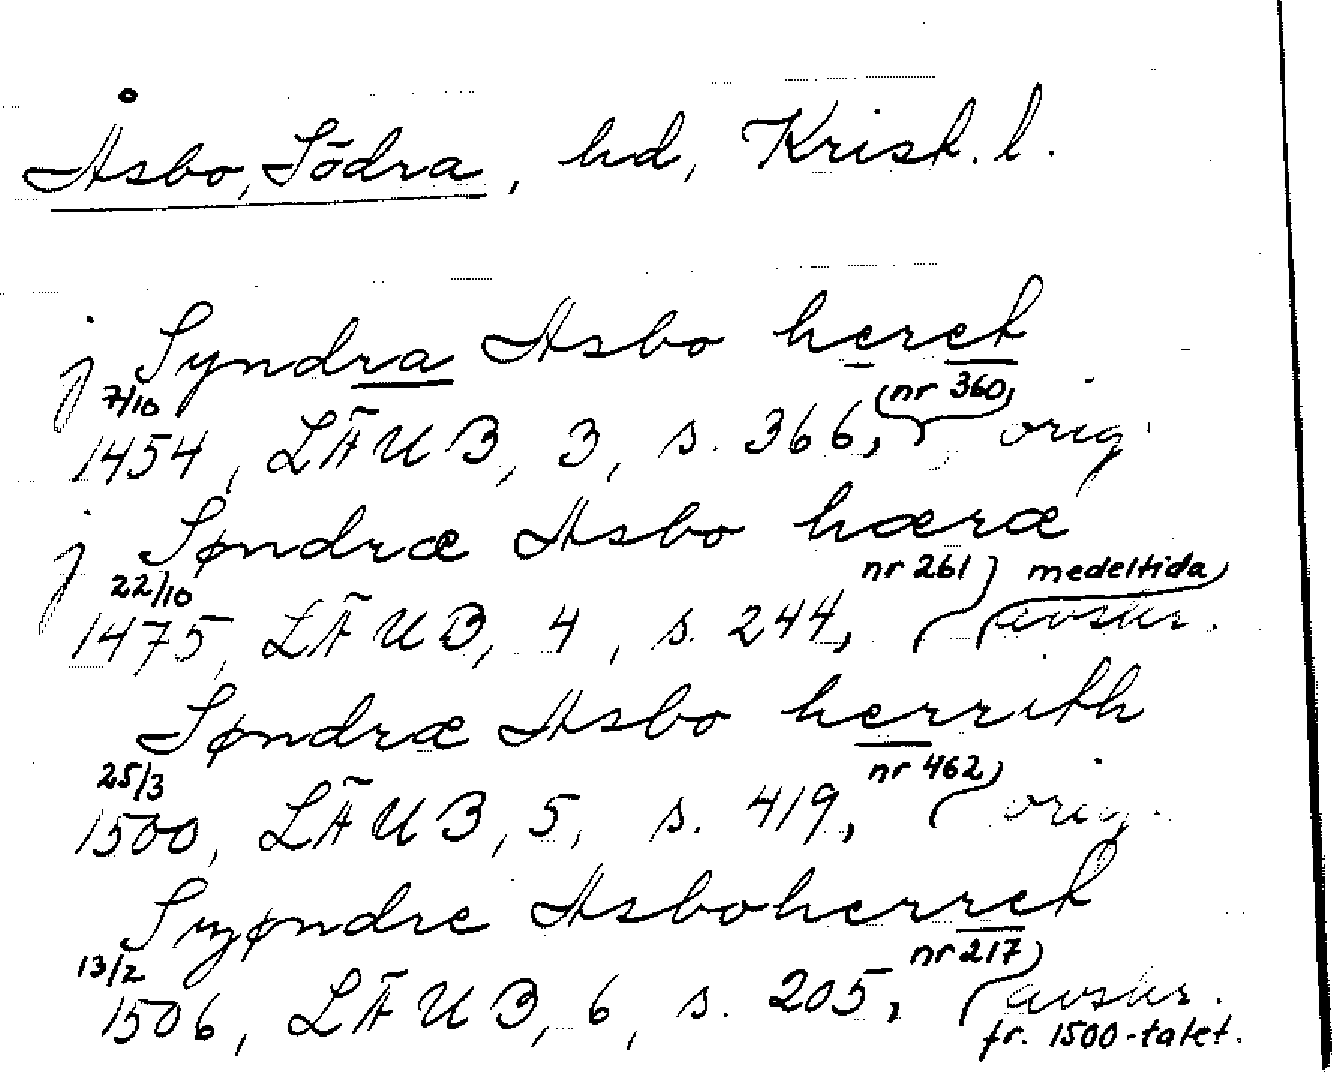 Åsbo, Södra, hd, Krist. l.
j Syndra Asbo heret
7/10 1454, LÄUB, 3, s. 366, nr 360, orig.
j Søndræ Asbo hæræ
22/10 1475, LÄUB, 4, s. 244, nr 261, medeltida avskr.
Søndræ Asbo herrith
25/3 1500, LÄUB, 5, s. 419, nr 462, orig.
Syøndre Asboherret
13/2 1506, LÄUB, 6, s. 205, nr 217, avskr. fr. 1500-talet.